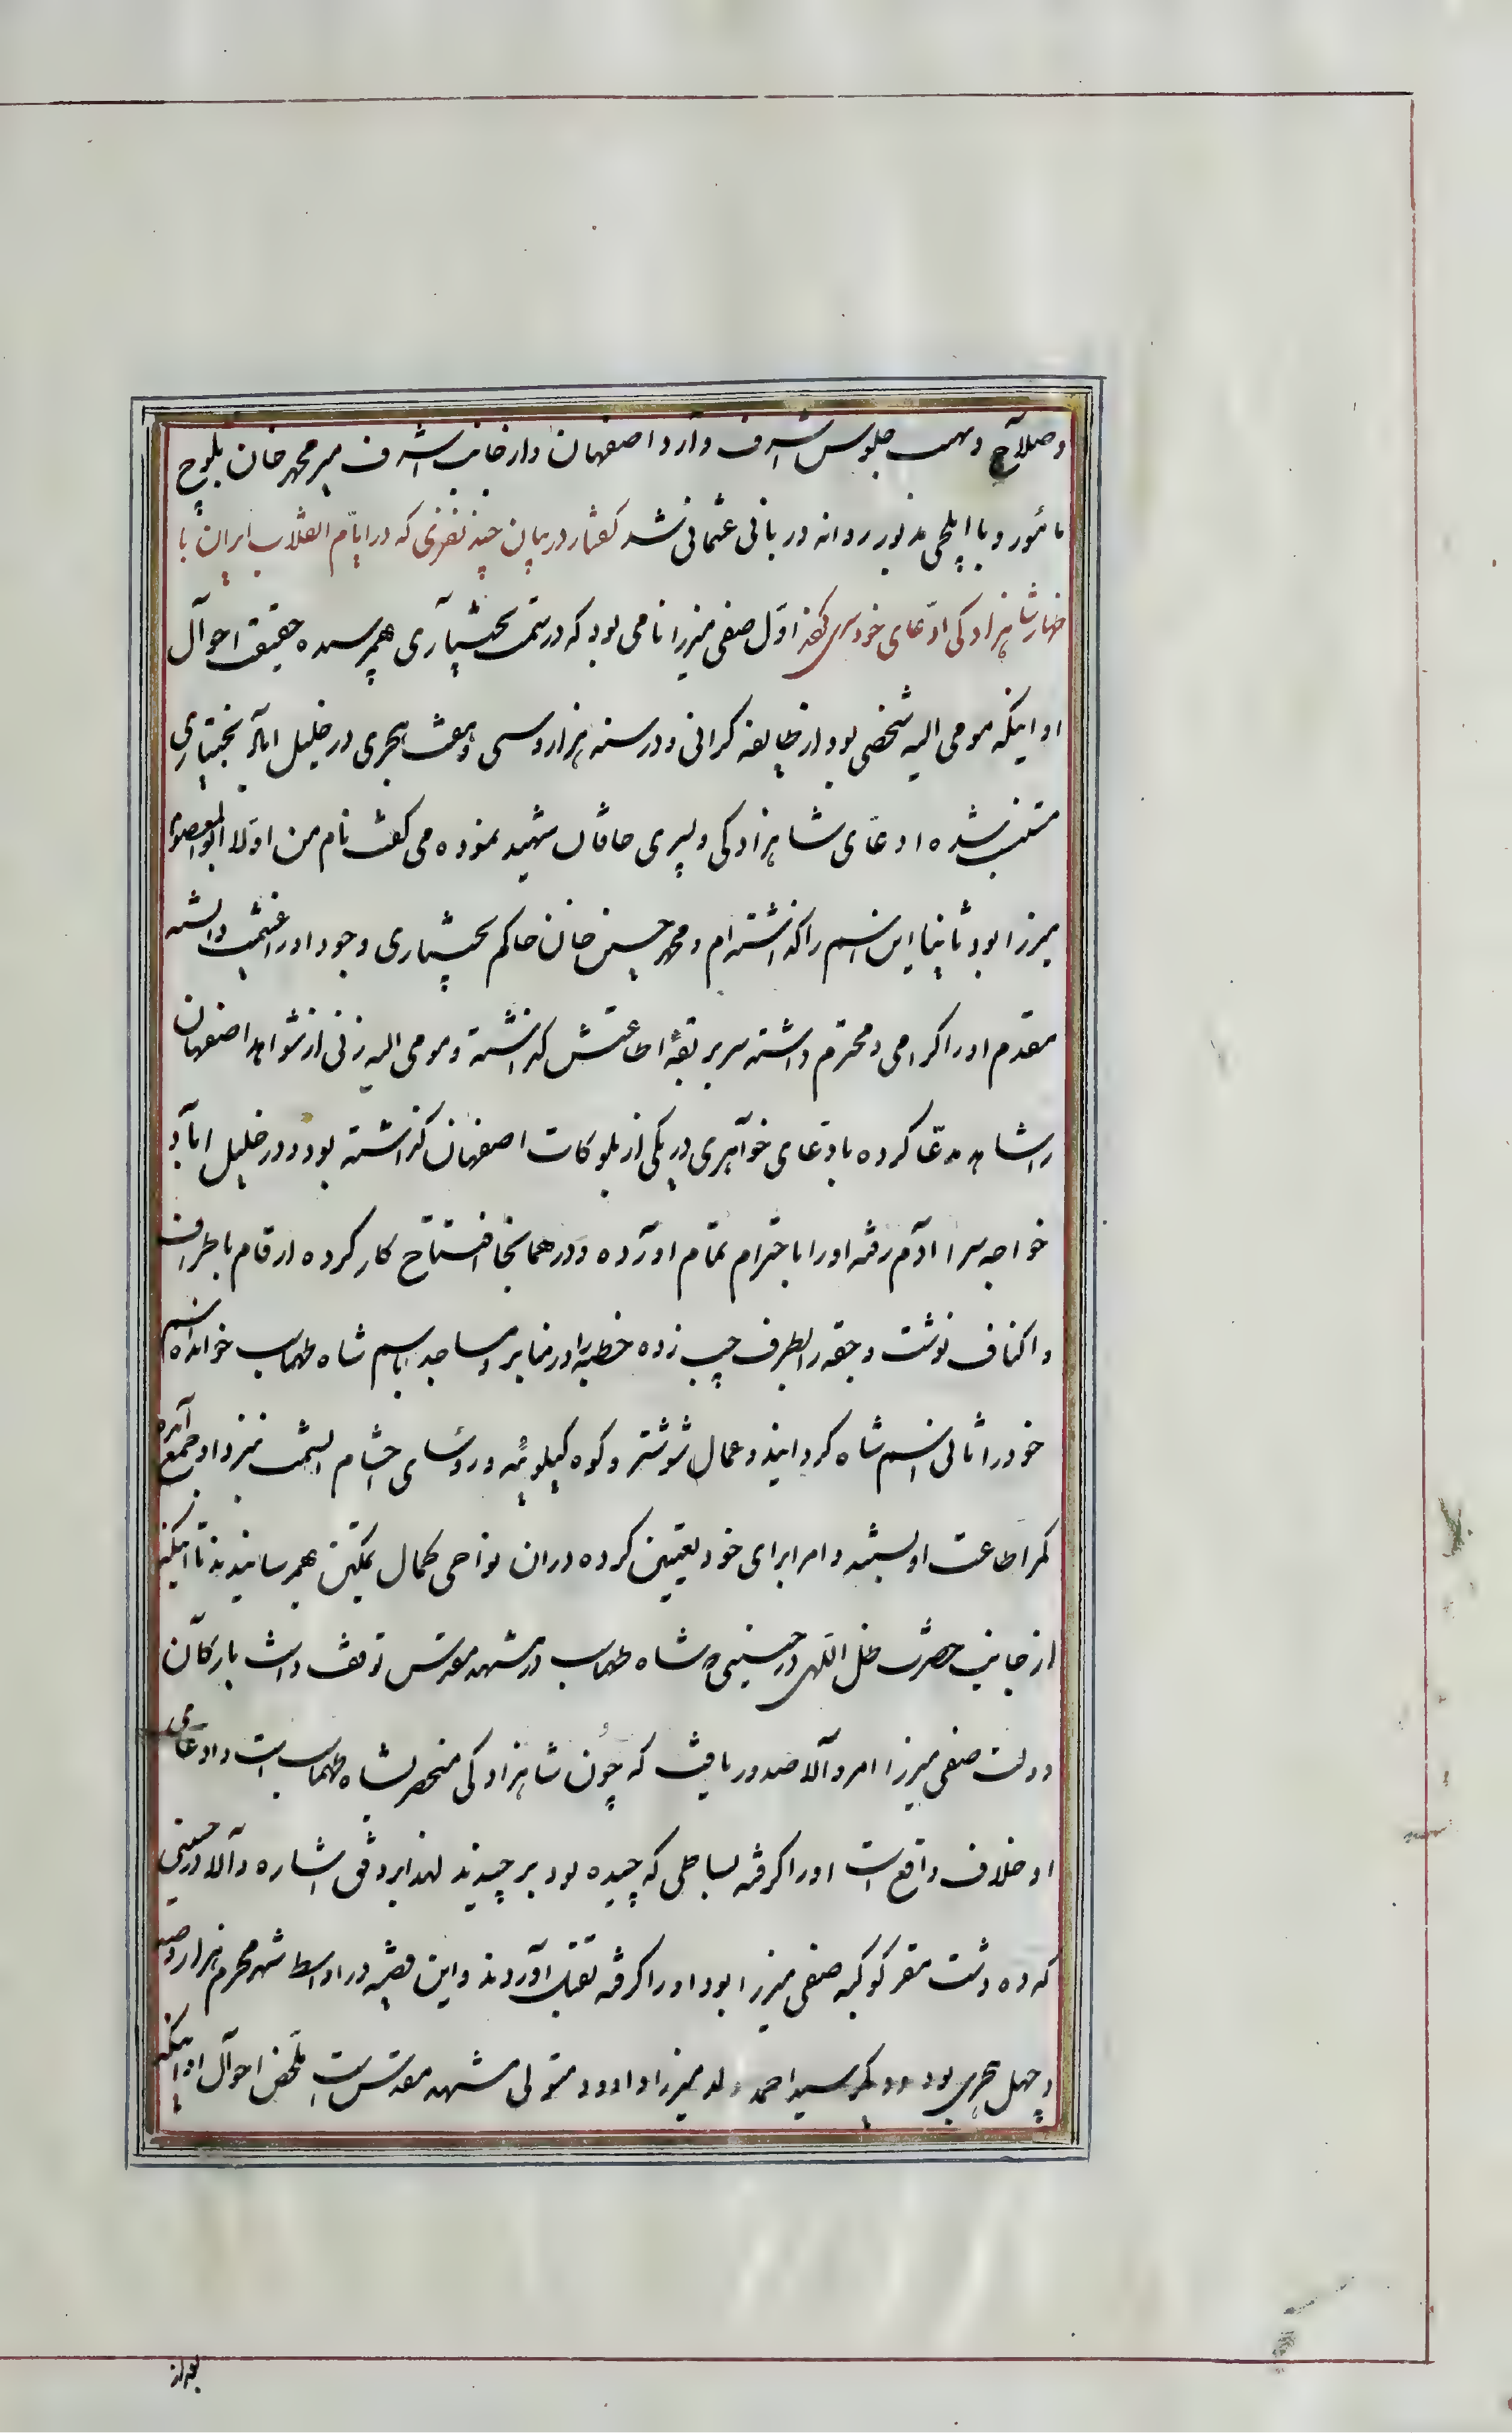 و صلاح و مهمت جلوس اشرف وارد اصفهان و از جانب اشرف میر محمد خان بلوچ
مأمور و با ایلچی مذبور روانه دربانی عثمانی شد گفتار در بیان چند نفری که در ایّام انقلاب ایران با
ظهار شاهزادگی ادّعای خودسری کردند اوّل صفی میرزا نامی بود که در سمت بختیاری بهمرسیده حقیقت احوال
او اینکه مومی الیه شخصی بود از طایفه کرانی و در سنه هزار و سی و هفت هجری در خلیل اباد بختیاری
منتسب شده ادعّای شاهزادگی و پسری خاقان شهید نموده می گفت نام من اوّلا ابوالمعصوم
میرزا بود ثانیا این اسم را گذاشته ام و محمد حسین خان حاکم بختیاری وجود او را غنیمت دانسته
مقدم او را گرامی و محترم داشته سر بر بقهٔ اطاعتش گذاشته و مومی الیه زنی از شواهد اصفهان
را شاهد مدعّا کرده بادعّای خواهری در یکی از بلوکات اصفهان گذاشته بود و در خلیل اباد
خواجه سرا ادم رفته او را باحترام تمام اورده و در همانجا افتتاح کار کرده ارقام باطراف
و اکناف نوشت و جقه را بطرف چپ زده خطبه را در منابر و مساجد باسم شاه طهماسب خوانده اسم
خود را ثانی اسم شاه گردانیذ و عمال شوشتر و کوه کیلویه و رؤسای احشام بسمت نیز داو جمع آمده
کمر اطاعت او بستند و امرا برای خود تعیین کرده در ان نواحی کمال تمکین بهمرسانیدند تا اینکه
از جانب حضرت ظل اللهی در حینی که شاه طهماسب در مشهد مقدس توقف داشت بارکان
دولت صفی میرزا امر والا صدور یافت که چون شاهزادگی منحصر بشاه طهماسب است و ادعای
او خلاف واقع است او را گرفته بساطی که چیده بود بر چیدند لهذا بر وفق اشاره والا در حینی
که ده دشت مقر کوکبه صفی میرزا بود او را گرفته بقتل اوردند و این قضیه در اواسط شهر محرم هزار و صد
و چهل هجری بود و دیگر سید احمد ولد میرزا داوود متولی مشهد مقدس است ملخص احوال او اینکه
بعد از